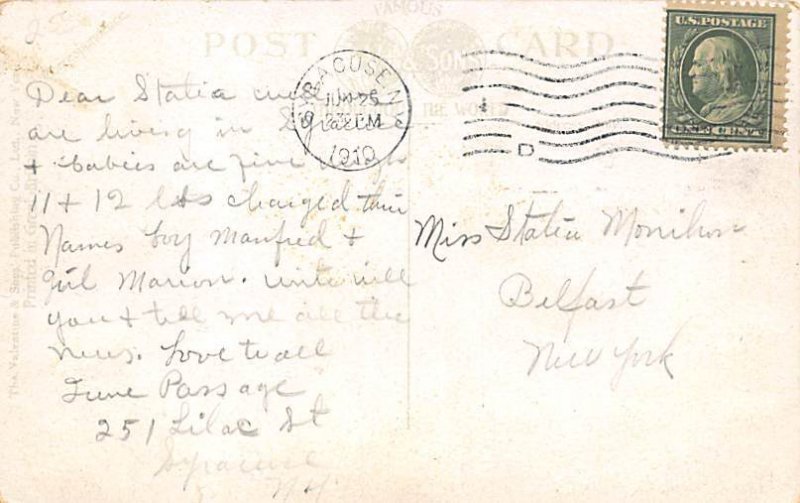 FAMOUS
POST CARD
SONS
THE WORLD
SYRACUSE N.Y.
JUN 25
PM
1910
D
U.S. POSTAGE
ONE CENT
The Valentine & Sons Publishing Co., Ltd., New
Printed in Great
Dear Statia
are living in Syracuse
+ Babies are fine weigh
11 + 12 lbs changed their
Names boy Manfred +
girl Marion. write will
you + tell me all the
news. Love to all
June Passage
251 Lilac St
Syracuse
N.Y.
Miss Statia
Belfast
New York